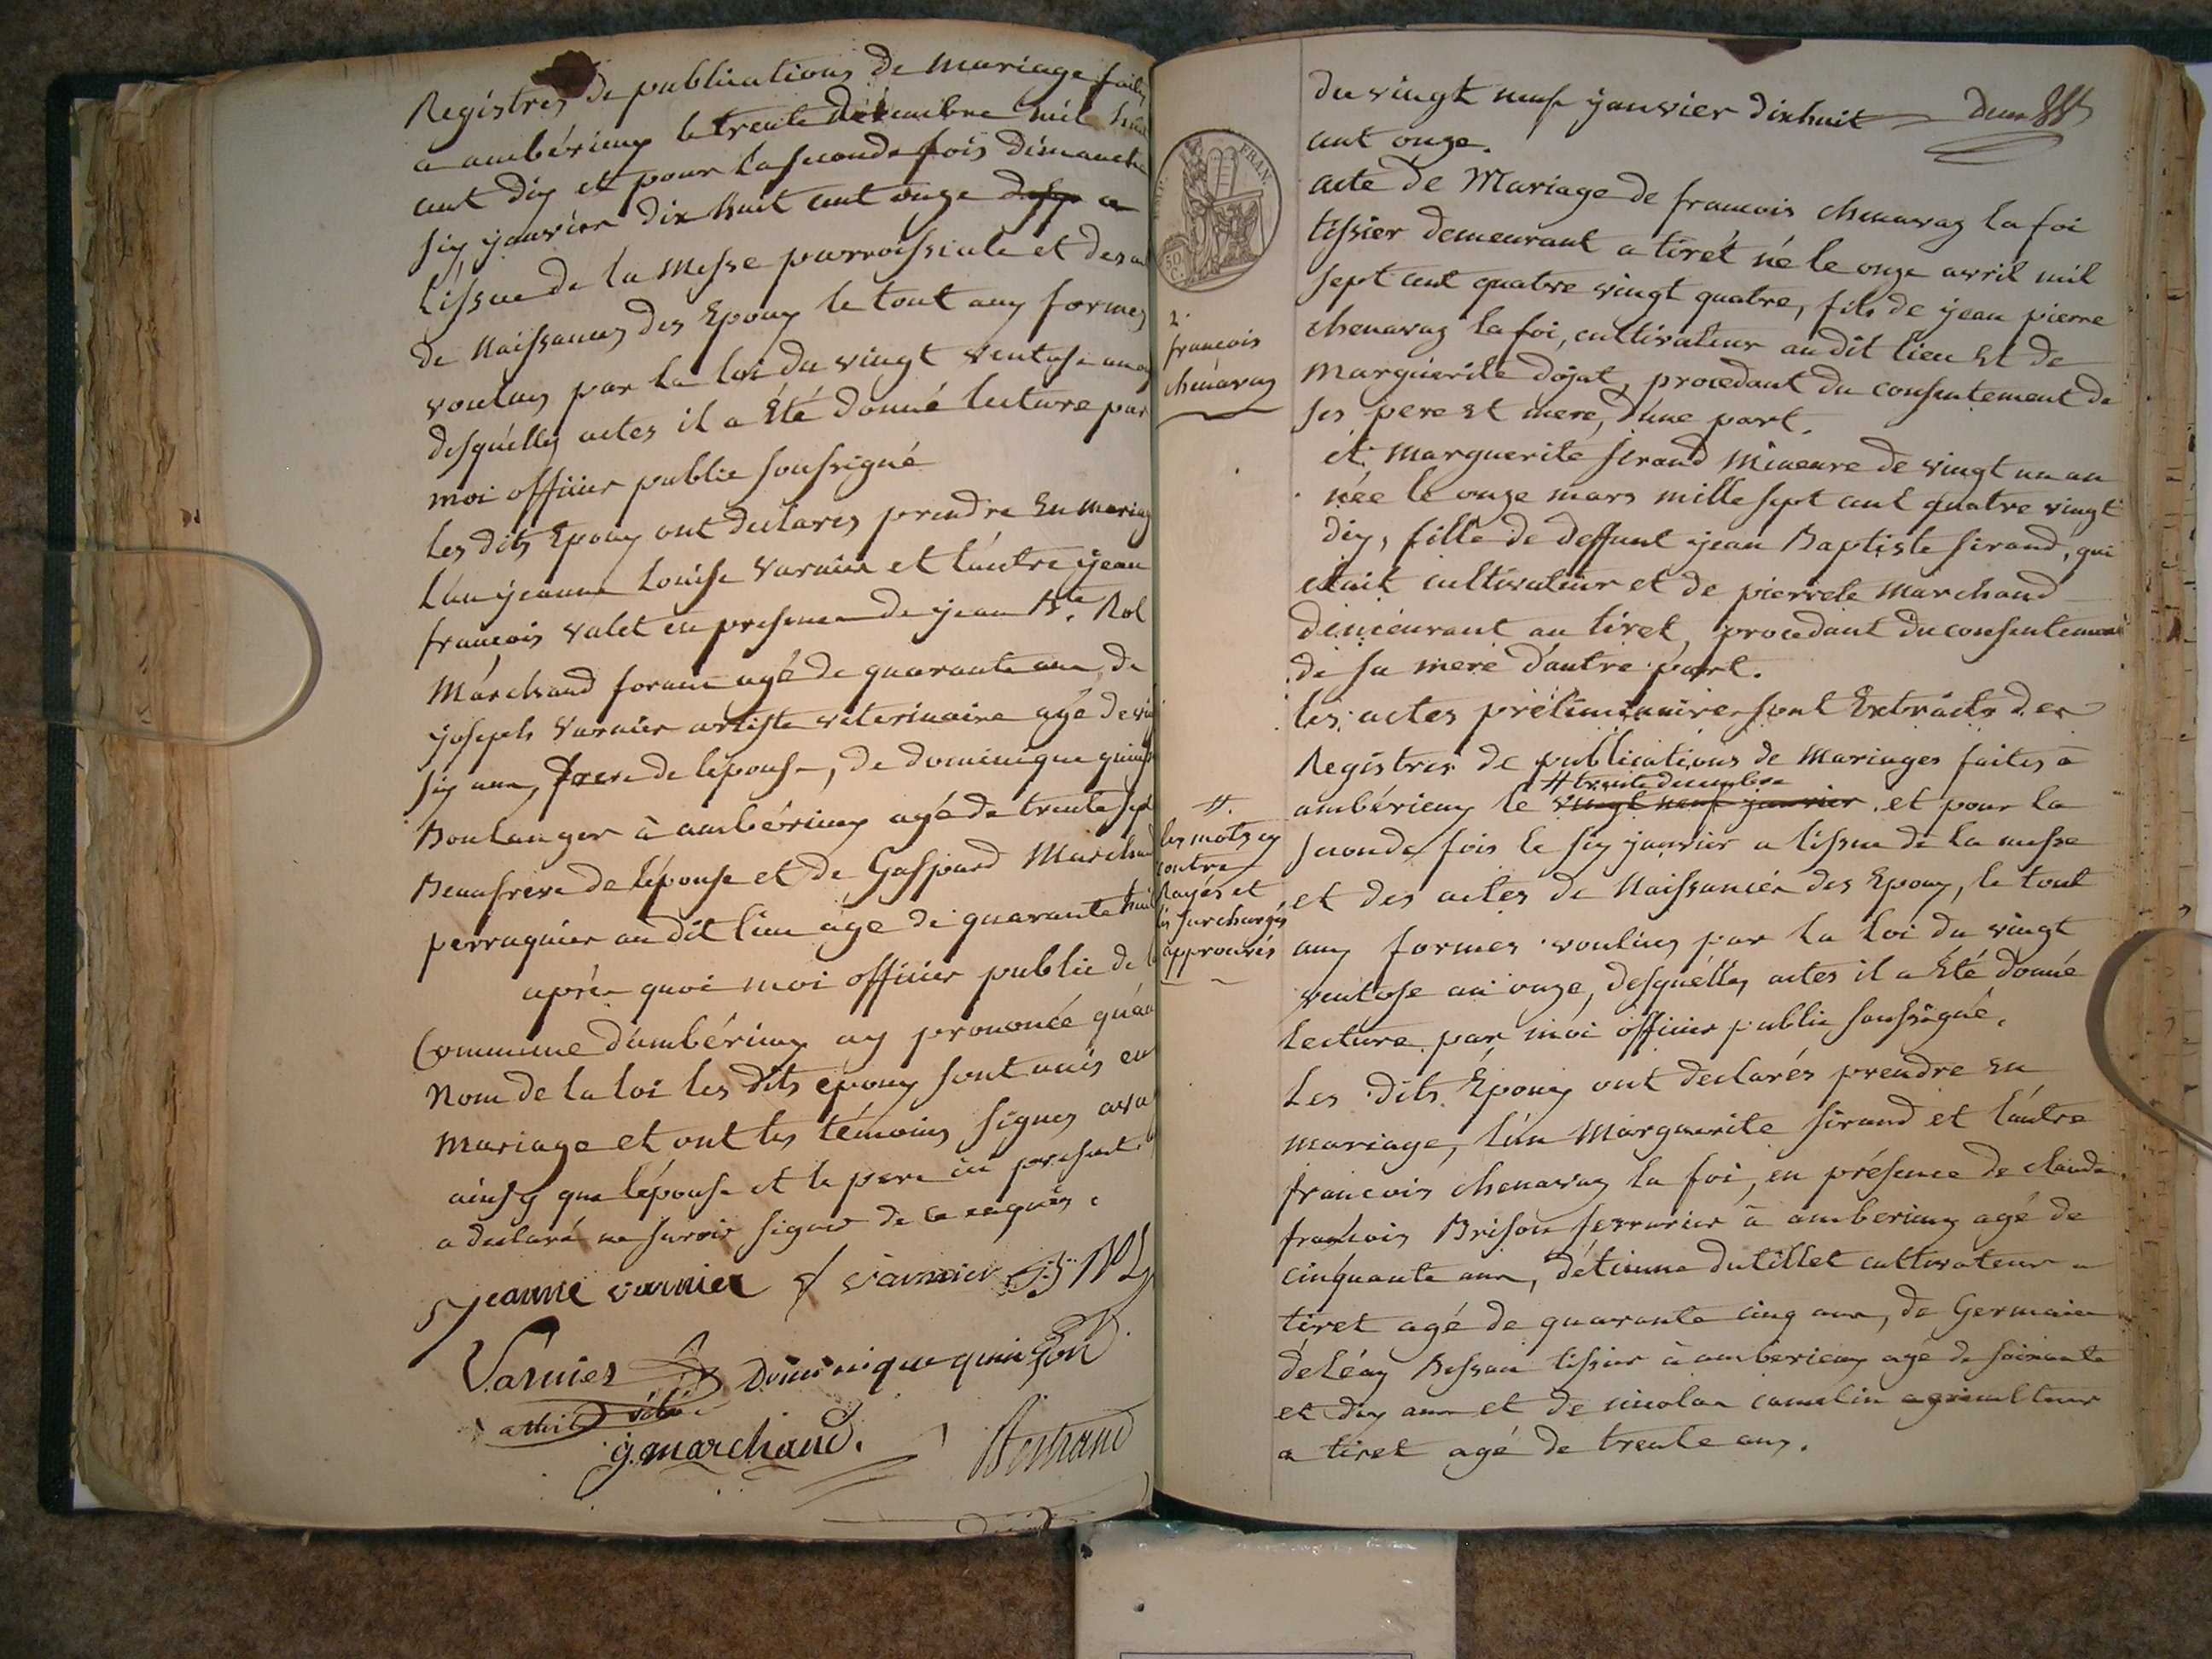 Registres de publications de mariage faites
a ambérieux le trente décembre mil huit
cent dix et pour la seconde fois dimanche
six janvier dix huit cent onze a
lissue de la messe parroissiale et des actes
de Naissances des Epoux le tout aux formes
voulues par la loi du vingt ventose an onze
desquelles actes il a été donné lecture par
moi officier public soussigné
les dits Epoux ont declarés prendre En mariage
l'un jeanne Louise varnier et l'autre jean
francois valet en presence de jean Bte. Rol
Marchand forain agé de quarante ans, de
joseph varnier artiste veterinaire agé de vingt
six ans, frere de lepouse, de dominique quinson
Boulanger à ambérieux agé de trente sept
Beaufrere de l'épouse et de Gaspard Marchand
perruquier au dit lieu age de quarante huit
après quoi moi officier public de la
Commune d'ambérieux ay prononcée qu'au
Nom de la loi les dits époux sont unis en
mariage et ont les témoins signes avec
ainsy que lépouse et le pere ici present
a declaré ne savoir signer de ce enquis.
jeanne varnier varnier
Varnier Dominique quinson
artiste vété
g. marchand. Bertrand
du vingt neuf janvier dix huit
cent onze.
acte de Mariage de francois chenavaz la foi
tissier demeurant a tirét né le onze avril mil
sept cent quatre vingt quatre, fils de jean pierre
chenavaz la foi, cultivateur au dit lieu Et de
Marguerite dojat, procedant du consentement de
ses pere et mere, d'une part.
et marguerite sirand mineure de vingt un an
née le onze mars mille sept cent quatre vingt
dix, fille de deffunt jean Baptiste sirand, qui
etait cultivateur et de pierrete marchand
demeurant au tiret, procedant du consentement
de sa mere d'autre part.
les actes préliminaire sont Extraits des
Registres de publications de mariages faites à
# trente decembre
ambérieux le vingt neuf janvier et pour la
seconde fois le six janvier a lissue de la messe
et des actes de Naissances des Epoux, le tout
aux formes voulues par la loi du vingt
ventose an onze, desquelles actes il a été donné
lecture par moi officier public soussigné.
Les dits Époux ont declarés prendre en
mariage, l'un Marguerite sirand et l'autre
francois chenavaz la foi, en présence de claude
francois Brison serrurier à amberieux agé de
cinquante ans, détienne dutillet cultivateur a
tiret agé de quarante cinq ans, de Germain
déléaz Bessan tissier à amberieux agé de soixante
et dix ans et de nicolas camelin agriculteur
a tiret agé de trente ans.
FRAN.
50
C.
2.
francois
chénavaz
#.
les mots cy
contre
Rayés et
les surchargés
approuvés